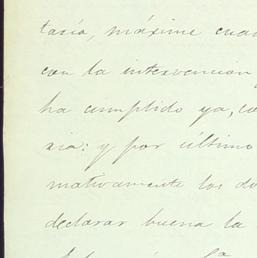 taría, máxime cuan
con la intervención
ha cumplido ya, co
ria: y por último
mativamente los do
declarar buena la